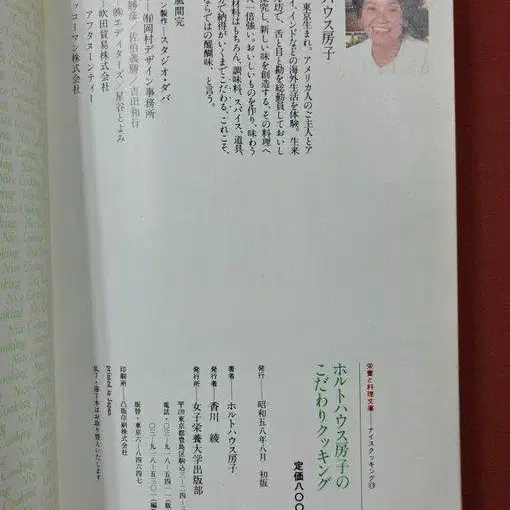 ハウス房子
東京生まれ。アメリカ人のご主人とア
イ、インドなどの海外生活を体験。生来
坊で、舌と目と勘を総動員しておいし
究し、新しい味を創造する。その料理へ
一倍強い。おいしいものを作り、味わう
材料はもちろん、調味料、スパイス、道具、
で納得がいくまでこだわる。これこそ、
ならではの醍醐味、と言う。
風間完
ン製作―スタジオ・ダバ
㈲岡村デザイン事務所
勝彦／佐伯義勝／吉田和行
㈱エディターズ／星谷とよみ
吹田貿易株式会社
アフタヌーンティー
ッコーマン株式会社
栄養と料理文庫―ナイスクッキング⑬
ホルトハウス房子の
こだわりクッキング
定価八〇〇
発行―昭和五八年八月 初版
著者―ホルトハウス房子
発行者―香川 綾
発行所―女子栄養大学出版部
〒170 東京都豊島区駒込三-二四-
電話・〇三-九一八-五四
〇三-九一八-五三〇一(編
振替・東京六-八四六四七
印刷所―八版印刷株式会社
printed in Japan
乱丁・落丁本はお取り替えいたします
Nice Cooking